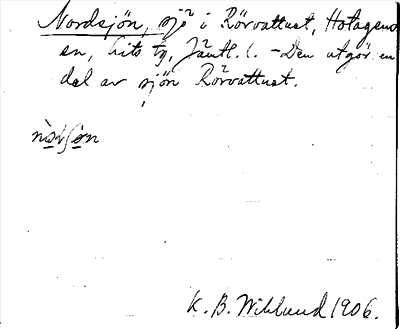 Nordsjön, sjö i Rörvattnet, Hotagens
sn, Lits tg, Jämtl. l. - Den utgör en
del av sjön Rörvattnet.
K. B. Wiklund 1906.